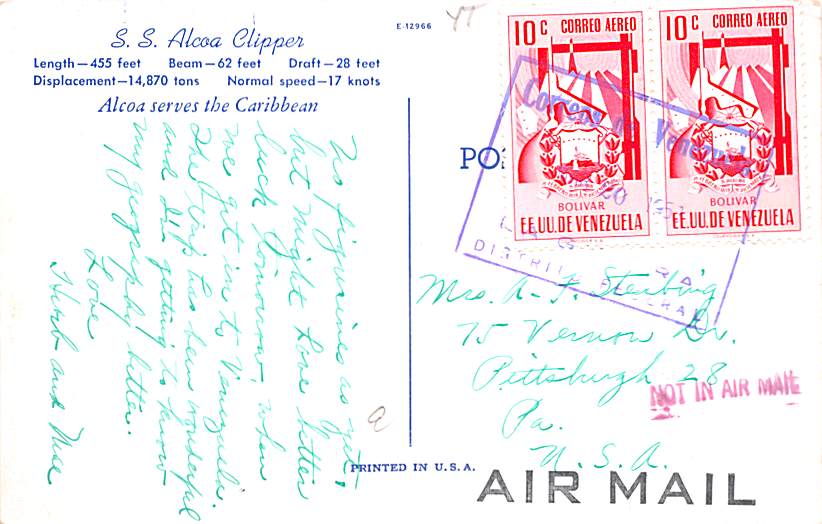 S. S. Alcoa Clipper
Length—455 feet Beam—62 feet Draft—28 feet
Displacement—14,870 tons Normal speed—17 knots
Alcoa serves the Caribbean
E-12966
No figurines as yet,
but might have better
luck tomorrow when
we get in to Venezuela.
The trip has been wonderful
and I'm getting to know
my geography better.
Love
Herb and Mae
10 C CORREO AEREO
BOLIVAR
EE.UU.DE VENEZUELA
10 C CORREO AEREO
BOLIVAR
EE.UU.DE VENEZUELA
Correos de Venezuela
20
DISTRITO FEDERAL
PO
Mrs. A. F. Sterbing
75 Vernon Dr.
Pittsburgh 28
Pa.
U. S. A.
NOT IN AIR MAIL
PRINTED IN U.S.A.
AIR MAIL